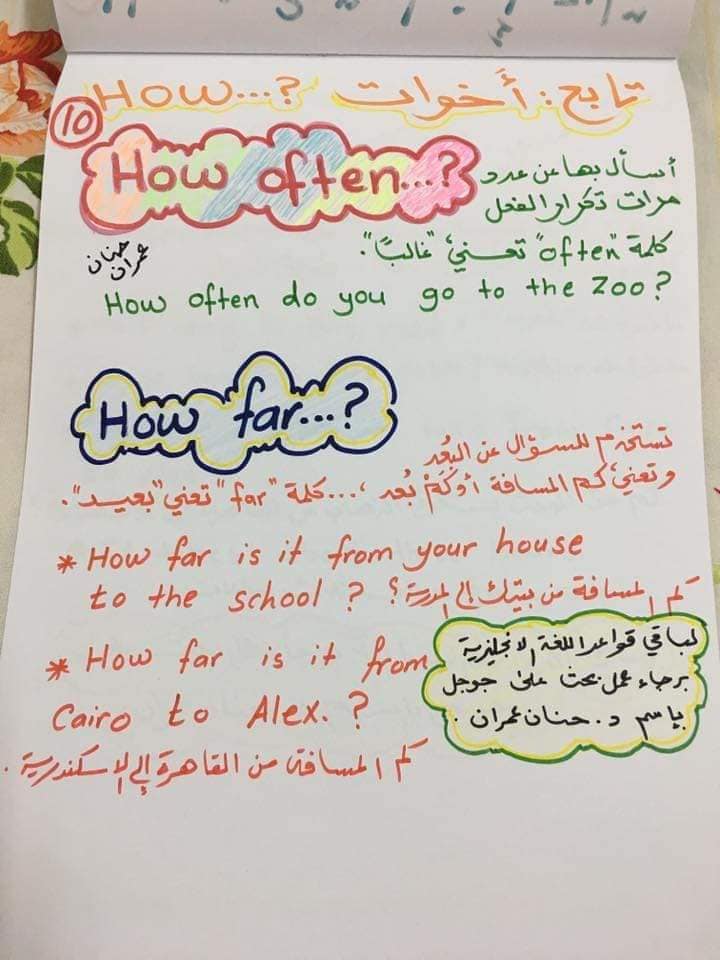 تابع: أخوات How...?
10
How often...?
أسأل بها عن عدد
مرات تكرار الفعل
كلمة "often" تعني "غالبًا".
حنان
عمران
How often do you go to the Zoo?
How far...?
تستخدم للسؤال عن البُعد
وتعني كم المسافة أو كَمْ بُعد ،...كلمة "far" تعني "بعيد".
* How far is it from your house
to the school? كم المسافة من بيتك إلى المدرسة؟
* How far is it from
Cairo to Alex.?
كم المسافة من القاهرة إلى الإسكندرية.
لباقي قواعد اللغة الإنجليزية
برجاء عمل بحث على جوجل
باسم د. حنان عمران.